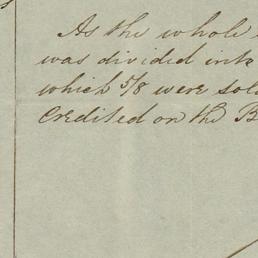 As the whole
was divided into
which 5/8 were sol
Credited on the B